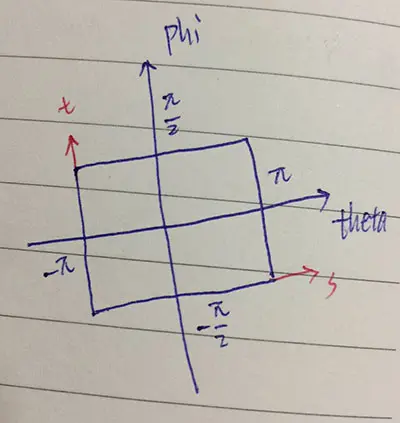 phi
t
π/2
π
theta
-π
s
-π/2